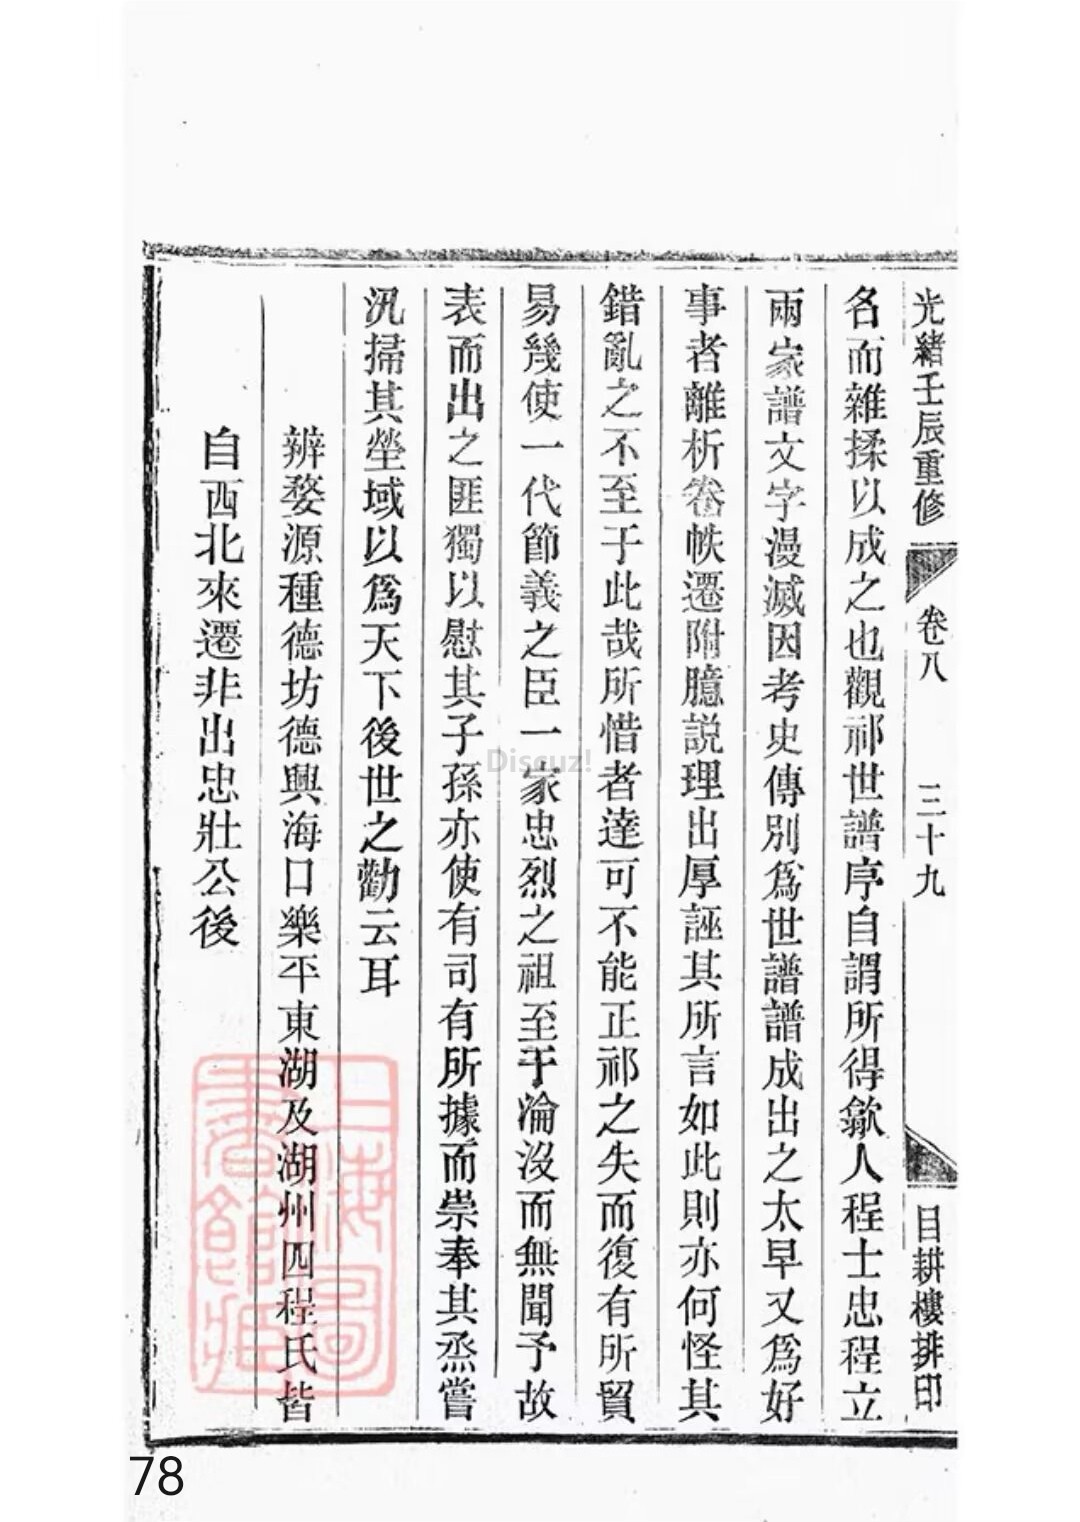 光緒壬辰重修 卷八 三十九 目耕樓排印
名而雜揉以成之也觀祁世譜序自謂所得歙人程士忠程立
兩家譜文字漫滅因考史傳別爲世譜譜成出之太早又爲好
事者離析卷帙遷附臆説理出厚誣其所言如此則亦何怪其
錯亂之不至于此哉所惜者達可不能正祁之失而復有所貿
易幾使一代節義之臣一家忠烈之祖至于淪沒而無聞予故
表而出之匪獨以慰其子孫亦使有司有所據而崇奉其烝嘗
汛掃其塋域以爲天下後世之勸云耳
辨婺源種德坊德興海口樂平東湖及湖州四程氏皆
自西北來遷非出忠壯公後
上海圖
書館藏
Discuz!
78